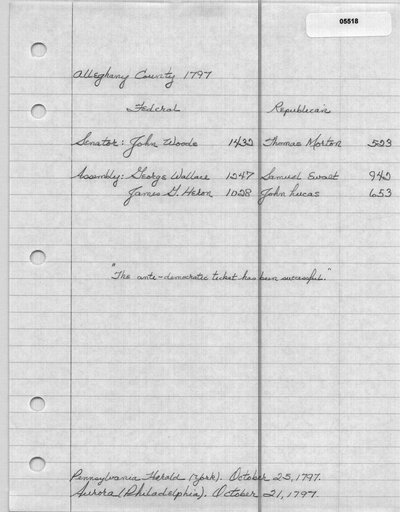 05518
Alleghany County 1797
Federal Republican
Senator: John Woods 1432 Thomas Morton 523
Assembly: George Wallace 1247 Samuel Ewalt 942
James G. Heron 1028 John Lucas 653
"The anti-democratic ticket has been successful."
Pennsylvania Herald (York). October 25, 1797.
Aurora (Philadelphia). October 21, 1797.